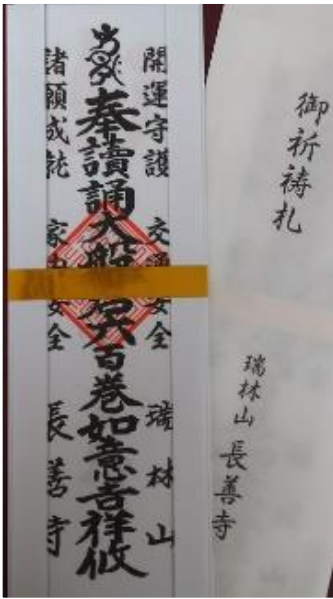 御祈祷札
瑞林山 長善寺
開運守護 交通安全 瑞林山
奉讀誦大般若六百巻如意吉祥攸
諸願成就 家内安全 長善寺